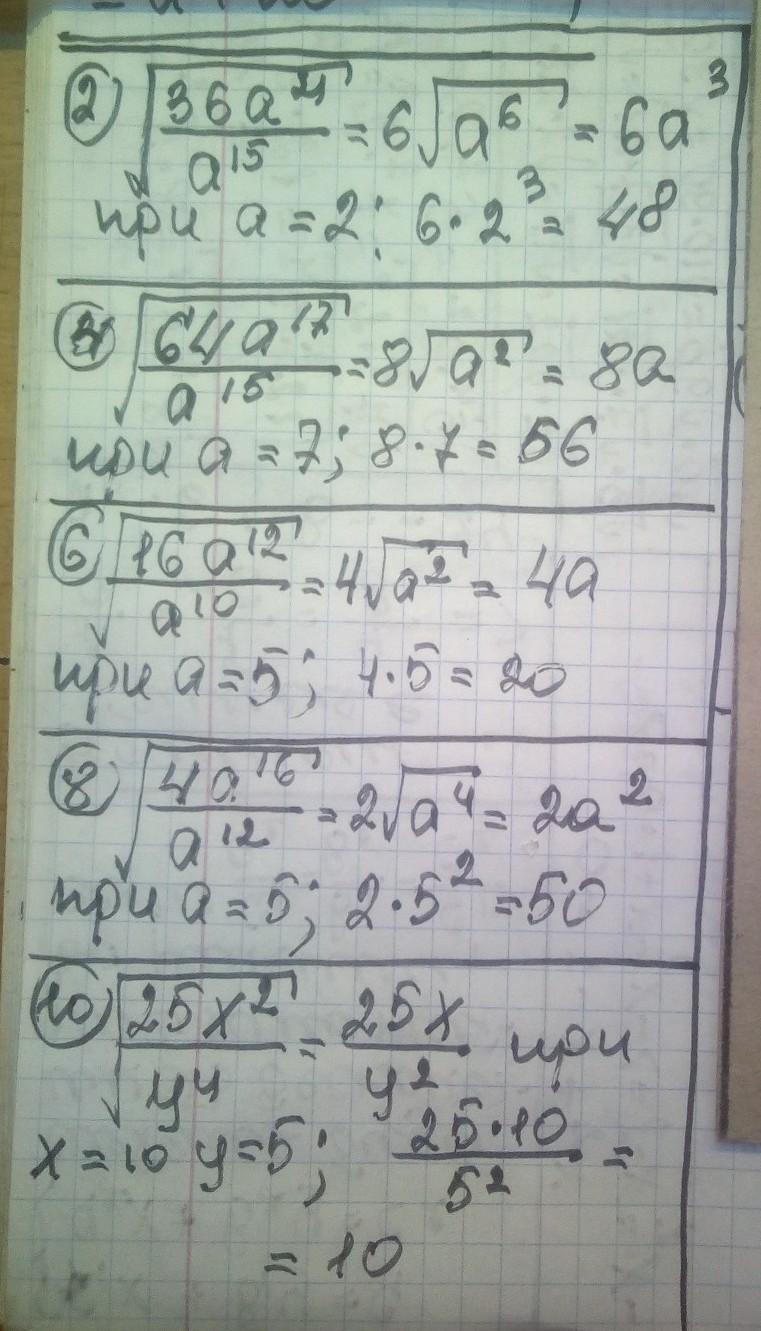 ② √(36a²¹/a¹⁵) = 6√(a⁶) = 6a³
при a = 2; 6·2³ = 48
④ √(64a¹⁷/a¹⁵) = 8√(a²) = 8a
при a = 7; 8·7 = 56
⑥ √(16a¹²/a¹⁰) = 4√(a²) = 4a
при a = 5; 4·5 = 20
⑧ √(4a¹⁶/a¹²) = 2√(a⁴) = 2a²
при a = 5; 2·5² = 50
⑩ √(25x²/y⁴) = 25x/y² при
x = 10 y = 5; 25·10/5² =
= 10